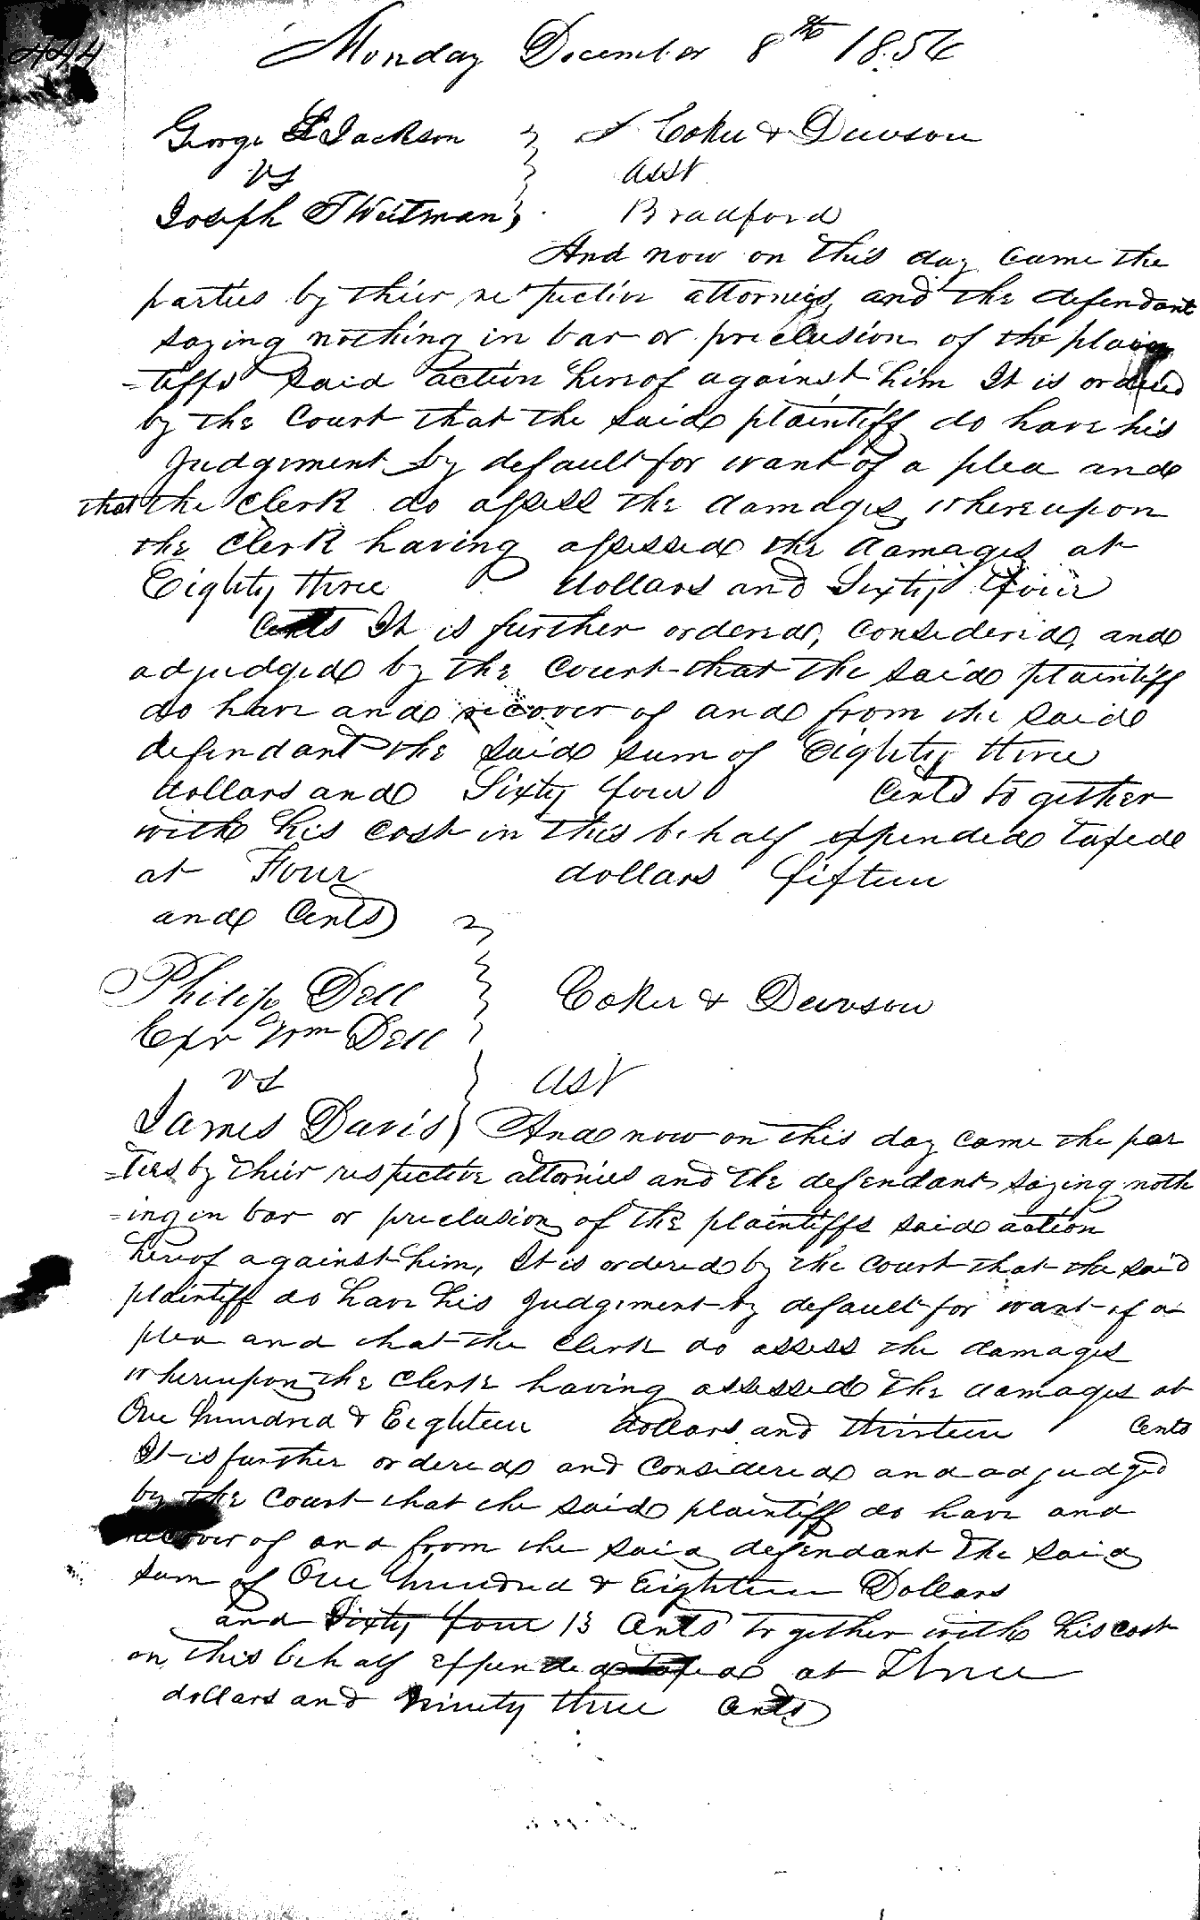 444
Monday December 8th 1856
George L Jackson Coker & Dawson
vs asst
Joseph T Weitman Bradford
And now on this day came the
parties by their respective attornies, and the defendant
saying nothing in bar or preclusion of the plain
=tiffs said action hereof against him It is ordered
by the Court that the said plaintiff do have his
Judgement by default for want of a plea and
that the Clerk do assess the damages, whereupon
the Clerk having assessed the damages at
Eighty three dollars and Sixty four
Cents It is further ordered, considered, and
adjudged by the Court that the said plaintiff
do have and recover of and from the said
defendant the said sum of Eighty three
dollars and Sixty four Cents together
with his cost in this behalf expended taxed
at Four dollars fifteen
and Cents
Philip Dell Coker & Dawson
Exr Wm Dell
vs asst
James Davis And now on this day came the par
=ties by their respective attornies and the defendant saying noth
=ing in bar or preclusion of the plaintiffs said action
hereof against him, It is ordered by the court that the said
plaintiff do have his Judgement by default for want of a
plea and that the Clerk do assess the damages
whereupon the Clerk having assessed the damages at
One hundred & Eighteen dollars and thirteen Cents
It is further ordered and considered and adjudged
by the Court that the said plaintiff do have and
recover of and from the said defendant the said
sum of One hundred & Eighteen Dollars
and Sixty four 13 Cents together with his cost
on this behalf expended taxed at Three
dollars and Ninety three Cents